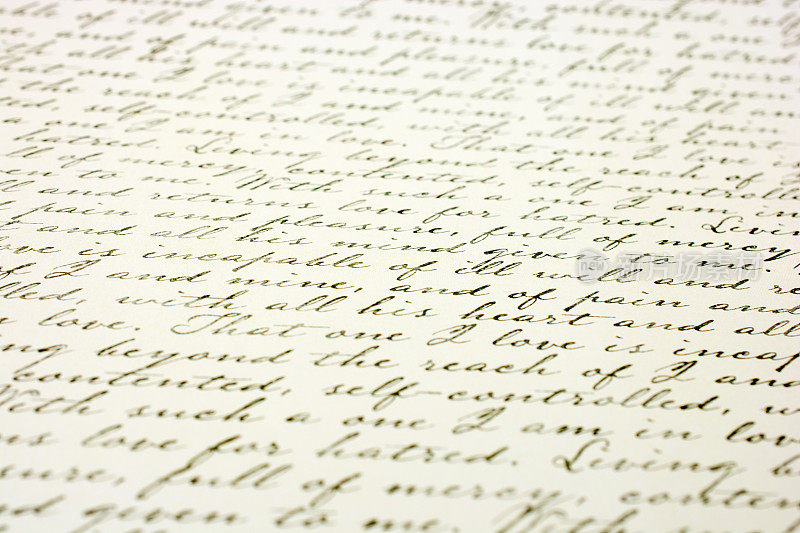 given to me. With such a
of ill will and returns love for hatred
and of pain and pleasure, full of
all his heart and all his mind given
one I love is incapable of ill will
the reach of I and mine, and of pain
self-controlled, with all his heart
a one I am in love. That one I love is
hatred. Living beyond the reach of
ll of mercy, contented, self-controlle
en to me. With such a one I am in
ll and returns love for hatred. Livin
pain and pleasure, full of mercy,
and all his mind given to me.
love is incapable of ill will and re
of I and mine, and of pain and
lled, with all his heart and all
n love. That one I love is incap
ng beyond the reach of I and
contented, self-controlled, w
With such a one I am in lov
ns love for hatred. Living b
sure, full of mercy, conten
given to me. With